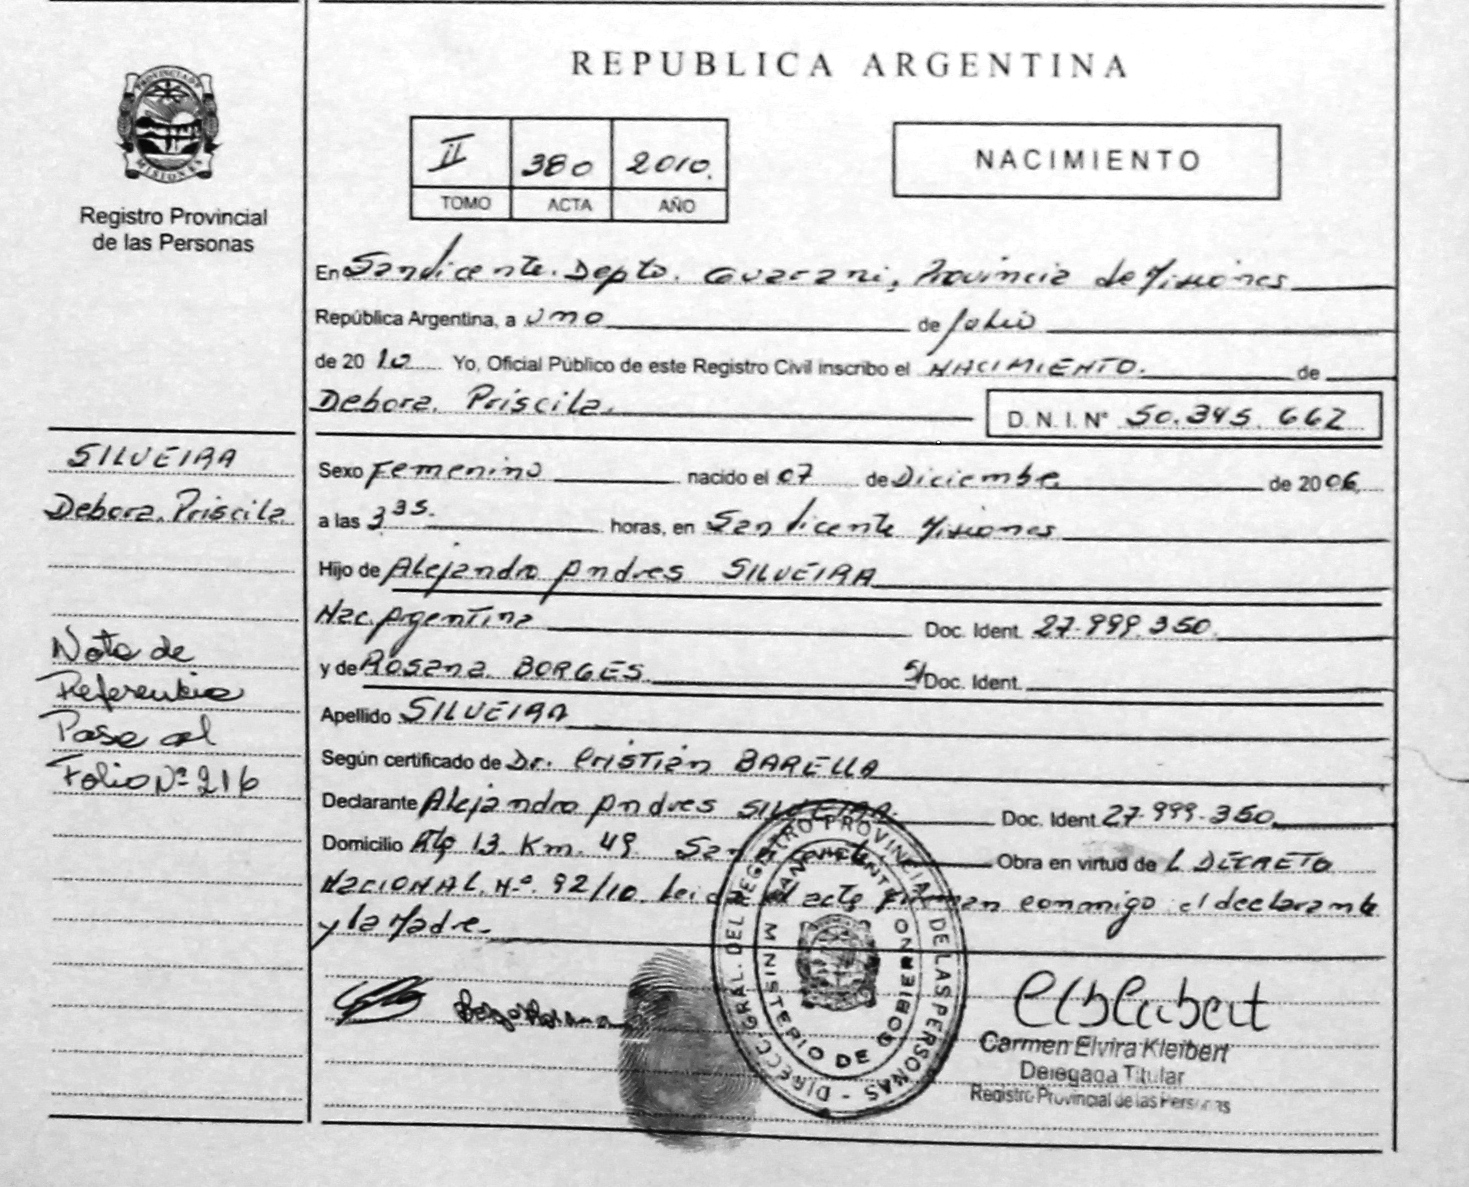 REPUBLICA ARGENTINA
PROVINCIA DE
MISIONES
Registro Provincial
de las Personas
II 380 2010.
TOMO ACTA AÑO
NACIMIENTO
En San Vicente. Depto. Guarani, Provincia de Misiones
República Argentina, a uno de Julio
de 2010 Yo, Oficial Público de este Registro Civil inscribo el NACIMIENTO. de
Debora. Priscila. D. N. I. Nº 50.345.662
SILVEIRA
Debora. Priscila
Sexo Femenino nacido el 07 de Diciembre de 2006
a las 3 35. horas, en San Vicente Misiones
Hijo de Alejandro Andres SILVEIRA
Nac. Argentina Doc. Ident. 27.999.350.
y de Rosana BORGES S/Doc. Ident.
Apellido SILVEIRA
Según certificado de Dr. Cristian BARELLA
Declarante Alejandro Andres SILVEIRA. Doc. Ident. 27.999.350
Domicilio Alg 13. Km. 49. San Vicente Obra en virtud de L DECRETO
NACIONAL. Nº. 92/10. Leida el acta firman conmigo el declarante
y la Madre.
Nota de
Referencia
Pase al
Folio Nº 216
DIRECC. GRAL. DEL REGISTRO PROVINCIAL DE LAS PERSONAS
SAN VICENTE
MINISTERIO DE GOBIERNO
Carmen Elvira Kleibert
Delegada Titular
Registro Provincial de las Personas